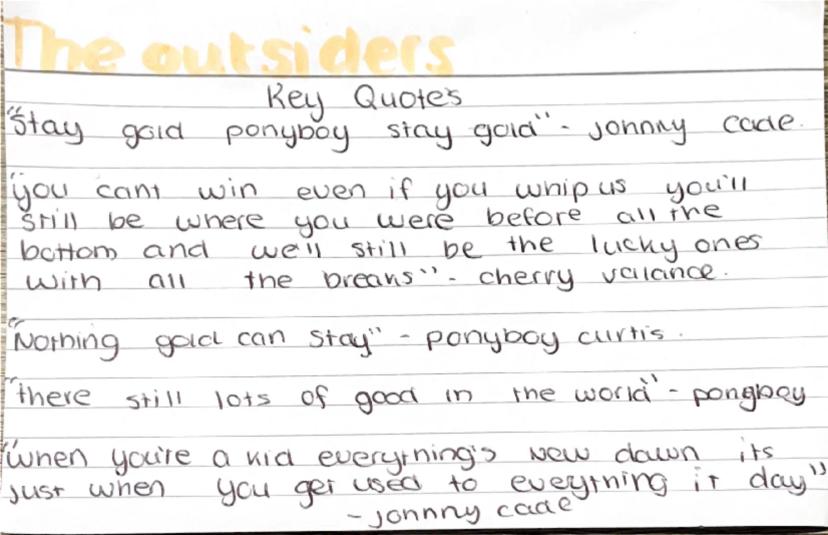 The outsiders
Key Quotes
"Stay gold ponyboy stay gold" - Johnny cade.
"you cant win even if you whip us you'll
still be where you were before all the
bottom and we'll still be the lucky ones
with all the breaks" - cherry valance.
"Nothing gold can stay" - ponyboy curtis.
"there still lots of good in the world" - pongboy
"when you're a kid everything's new dawn its
just when you get used to eveything it day"
- Johnny cade